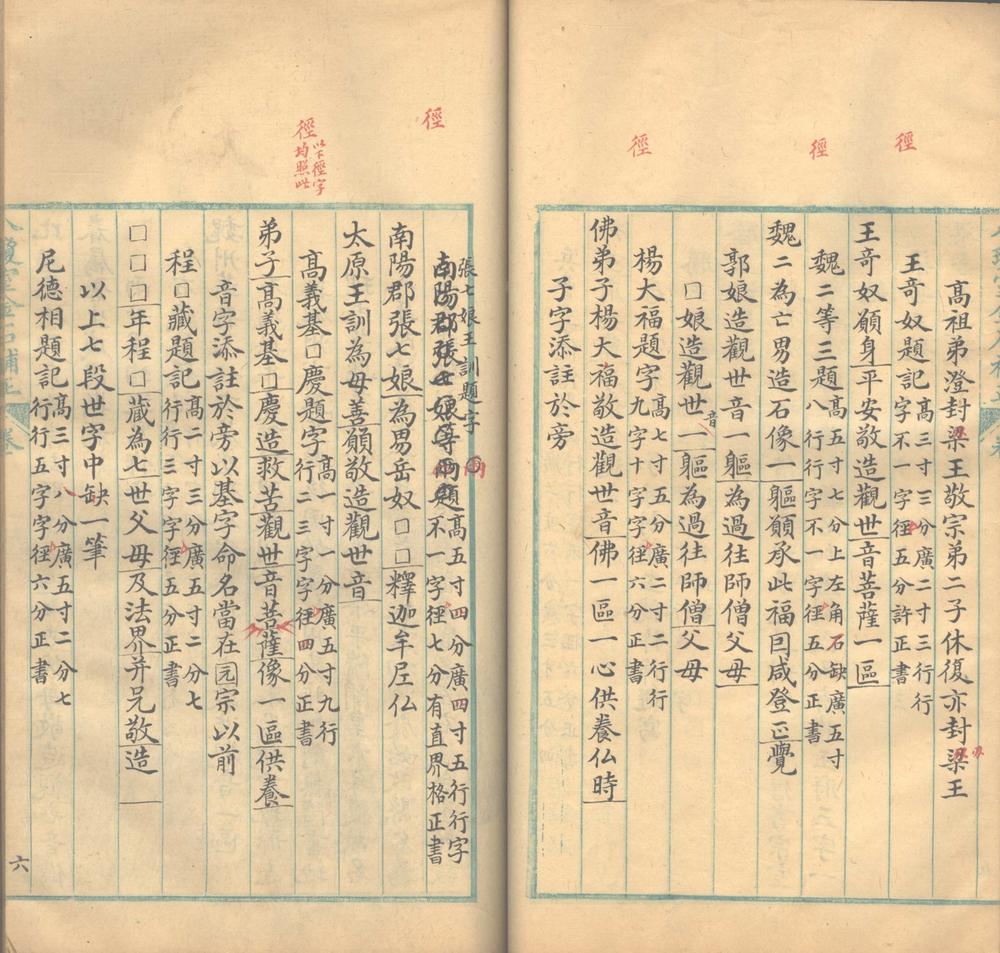 徑
徑
徑
高祖弟澄封梁王敬宗弟二子休復亦封梁王
王奇奴題記高三寸三分廣二寸三行行
字不一字徑五分許正書
王奇奴願身平安敬造觀世音菩薩一區
魏二等三題高五寸七分上左角石缺廣五寸
八行行字不一字徑五分正書
魏二為亡男造石像一軀願承此福因咸登正覺
郭娘造觀世音一軀為過往師僧父母
□娘造觀世音一軀為過往師僧父母
楊大福題字高七寸五分廣二寸二行行
九字十字字徑六分正書
佛弟子楊大福敬造觀世音佛一區一心供養仏時
子字添註於旁
徑
徑以下徑字
均照此
張七娘王訓題字
南陽郡張七娘等兩題高五寸四分廣四寸五行行字
不一字徑七分有直界格正書
兩
南陽郡張七娘為男岳奴□□釋迦牟尼仏
太原王訓為母善願敬造觀世音
高義基□慶題字高一寸一分廣五寸九行
行二三字字徑四分正書
弟子高義基□慶造救苦觀世音菩薩像一區供養
音字添註於旁以基字命名當在园宗以前
程□藏題記高二寸三分廣五寸二分七
行行三字字徑五分正書
□□□年程□藏為七世父母及法界并兄敬造
以上七段世字中缺一筆
尼德相題記高三寸八分廣五寸二分七
行行五字字徑六分正書
六